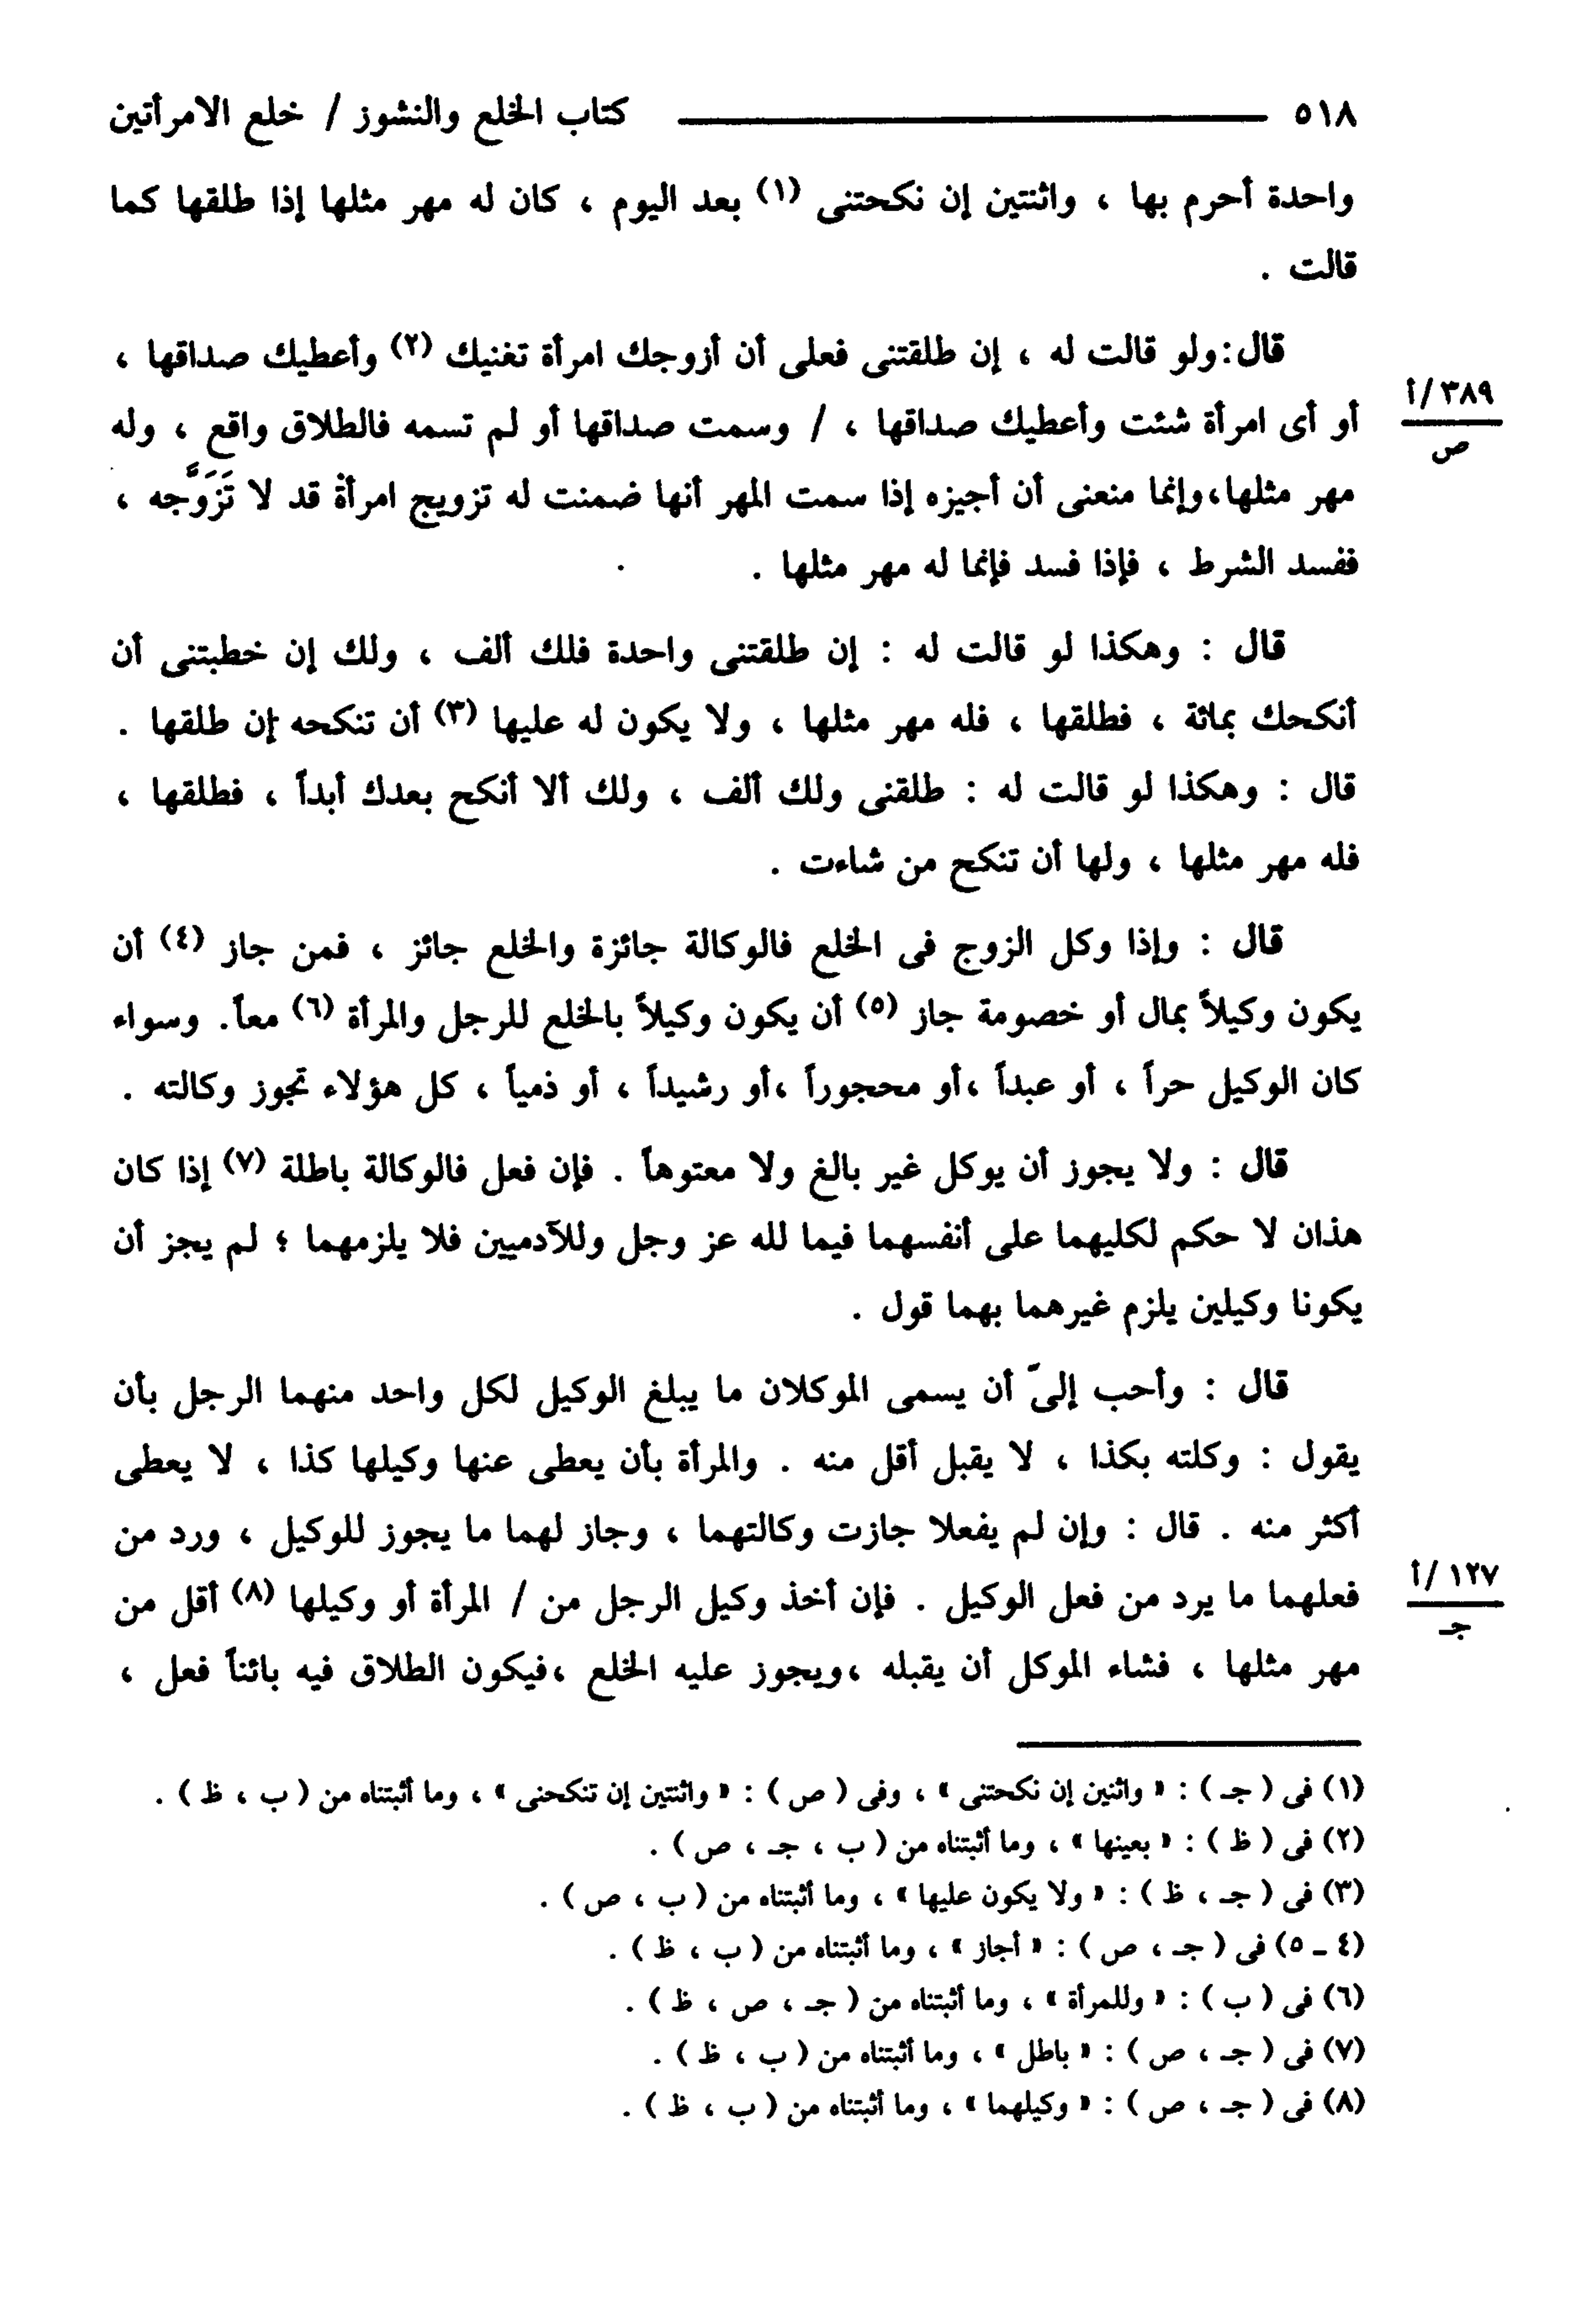 ٥١٨ كتاب الخلع والنشوز / خلع الامرأتين
واحدة أحرم بها ، واثنتين إن نكحتنى (١) بعد اليوم ، كان له مهر مثلها إذا طلقها كما
قالت .
قال : ولو قالت له ، إن طلقتنى فعلى أن أزوجك امرأة تغنيك (٢) وأعطيك صداقها ،
أو أى امرأة شئت وأعطيك صداقها ، / وسمت صداقها أو لم تسمه فالطلاق واقع ، وله
٣٨٩/أ
ص
مهر مثلها ، وإنما منعنى أن أجيزه إذا سمت المهر أنها ضمنت له تزويج امرأة قد لا تَزَوَّجه ،
ففسد الشرط ، فإذا فسد فإنما له مهر مثلها .
قال : وهكذا لو قالت له : إن طلقتنى واحدة فلك ألف ، ولك إن خطبتنى أن
أنكحك بمائة ، فطلقها ، فله مهر مثلها ، ولا يكون له عليها (٣) أن تنكحه إن طلقها .
قال : وهكذا لو قالت له : طلقنى ولك ألف ، ولك ألا أنكح بعدك أبداً ، فطلقها ،
فله مهر مثلها ، ولها أن تنكح من شاءت .
قال : وإذا وكل الزوج فى الخلع فالوكالة جائزة والخلع جائز ، فمن جاز (٤) أن
يكون وكيلاً بمال أو خصومة جاز (٥) أن يكون وكيلاً بالخلع للرجل والمرأة (٦) معاً. وسواء
كان الوكيل حراً ، أو عبداً ،أو محجوراً ،أو رشيداً ، أو ذمياً ، كل هؤلاء تجوز وكالته .
قال : ولا يجوز أن يوكل غير بالغ ولا معتوهاً . فإن فعل فالوكالة باطلة (٧) إذا كان
هذان لا حكم لكليهما على أنفسهما فيما لله عز وجل وللآدميين فلا يلزمهما ؛ لم يجز أن
يكونا وكيلين يلزم غيرهما بهما قول .
قال : وأحب إلىّ أن يسمى الموكلان ما يبلغ الوكيل لكل واحد منهما الرجل بأن
يقول : وكلته بكذا ، لا يقبل أقل منه . والمرأة بأن يعطى عنها وكيلها كذا ، لا يعطى
أكثر منه . قال : وإن لم يفعلا جازت وكالتهما ، وجاز لهما ما يجوز للوكيل ، ورد من
فعلهما ما يرد من فعل الوكيل . فإن أخذ وكيل الرجل من / المرأة أو وكيلها (٨) أقل من
١٢٧/أ
جـ
مهر مثلها ، فشاء الموكل أن يقبله ،ويجوز عليه الخلع ،فيكون الطلاق فيه بائناً فعل ،
(١) فى ( جـ ) : « واثنين إن نكحتنى » ، وفى ( ص ) : « واثنتين إن تنكحنى » ، وما أثبتناه من ( ب ، ظ ) .
(٢) فى ( ظ ) : « بعينها » ، وما أثبتناه من ( ب ، جـ ، ص ) .
(٣) فى ( جـ ، ظ ) : « ولا يكون عليها » ، وما أثبتناه من ( ب ، ص ) .
(٤ ـ ٥) فى ( جـ ، ص ) : « أجاز » ، وما أثبتناه من ( ب ، ظ ) .
(٦) فى ( ب ) : « وللمرأة » ، وما أثبتناه من ( جـ ، ص ، ظ ) .
(٧) فى ( جـ ، ص ) : « باطل » ، وما أثبتناه من ( ب ، ظ ) .
(٨) فى ( جـ ، ص ) : « وكيلهما » ، وما أثبتناه من ( ب ، ظ ) .